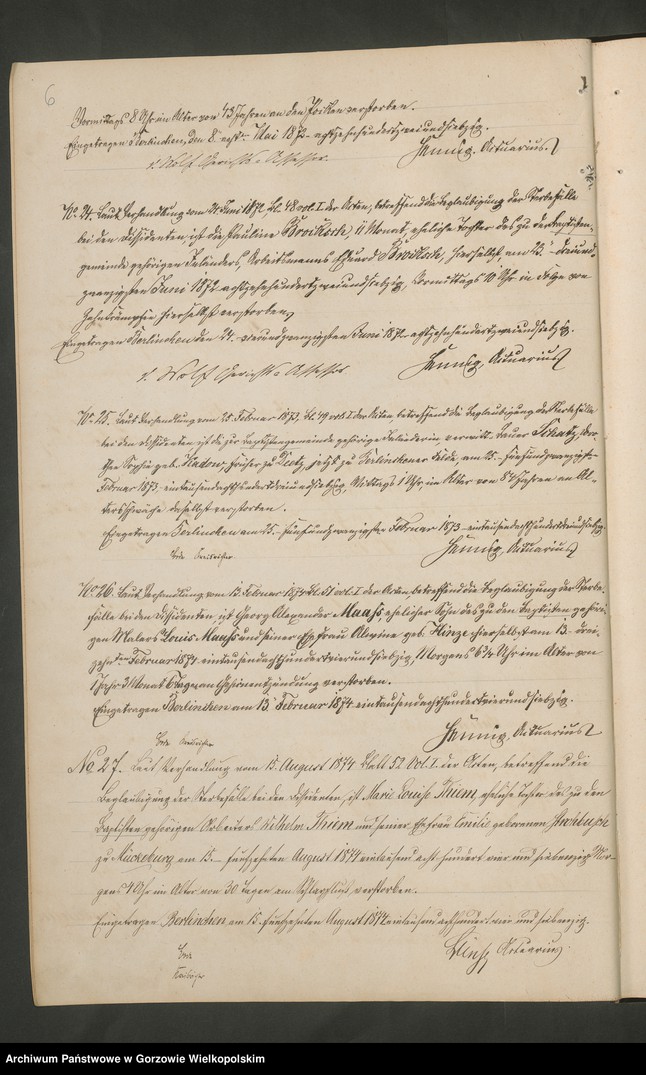 6
Vormittags 8 Uhr im Alter von 43 Jahren an den Pocken verstorben.
Eingetragen Berlinchen, den 8. Mai 1872 achtzehnhundertzweiundsiebzig.
v. Wolf Gerichts-Assessor. Hennig, Actuarius.
No 24. Laut Verhandlung vom 24. Juni 1872 Bl. 48 vol. I der Acten, betreffend die Beglaubigung der Sterbefälle
bei den Dissidenten, ist die Pauline 11 Monat, eheliche Tochter des zu der Baptisten-
gemeinde gehörigen Inländers, Arbeitsmanns Eduard hierselbst, am 23. dreiund-
zwanzigsten Juni 1872 achtzehnhundertzweiundsiebzig, Vormittags 10 Uhr in Folge von
Zahnkrämpfen hierselbst verstorben,
Eingetragen Berlinchen den 24. vierundzwanzigsten Juni 1872 achtzehnhundertzweiundsiebzig.
v. Wolf Gerichts-Assessor Hennig, Actuarius
No 25. Laut Verhandlung vom 25. Februar 1873, Bl. 49 vol. I der Acten, betreffend die Beglaubigung der Sterbefälle
bei den Dissidenten ist die zur Baptistengemeinde gehörige Inländerin verwitt. Bauer Schatz, Doro-
thee Sophie geb. Radow, früher zu jetzt zu Berlinchener Felde, am 25. fünfundzwanzigsten
Februar 1873 eintausendachthundertdreiundsiebzig, Mittags 1 Uhr, im Alter von 84 Jahren an Al-
tersschwäche daselbst verstorben.
Eingetragen Berlinchen am 25. fünfundzwanzigsten Februar 1873 eintausendachthundertdreiundsiebzig.
Hennig, Actuarius
No 26. Laut Verhandlung vom 13. Februar 1874 Bl. 51 vol. I der Acten, betreffend die Beglaubigung der Sterbe-
fälle bei den Dissidenten, ist Georg Alexander Maaß, ehelicher Sohn des zu den Baptisten gehöri-
gen Malers Louis Maaß und seiner Ehefrau Alwine geb. Hinze hierselbst am 13. drei-
zehnten Februar 1874 eintausendachthundertvierundsiebzig, Morgens 6¾ Uhr im Alter von
1 Jahr 3 Monat 6 Tagen an Gehirnentzündung verstorben.
Eingetragen Berlinchen am 13. Februar 1874 eintausendachthundertvierundsiebzig.
Hennig, Actuarius
No 27. Laut Verhandlung vom 15. August 1874 Blatt 52 Vol. I. der Acten, betreffend die
Beglaubigung der Sterbefälle bei den Dissidenten, ist Marie Louise Thiem, eheliche Tochter des zu den
Baptisten gehörigen Arbeiters Wilhelm Thiem und seiner Ehefrau Emilie geborenen
zu Mückeburg am 15. fünfzehnten August 1874 eintausend acht hundert vier und siebenzig Mor-
gens 4 Uhr im Alter von 30 Tagen am Schlagfluß verstorben.
Eingetragen Berlinchen am 15. fünfzehnten August 1874 eintausend achthundert vier und siebenzig.
Actuarius.
Archiwum Państwowe w Gorzowie Wielkopolskim